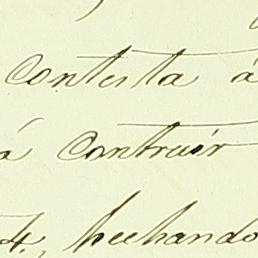 contesta á
á contruir
4, hechando